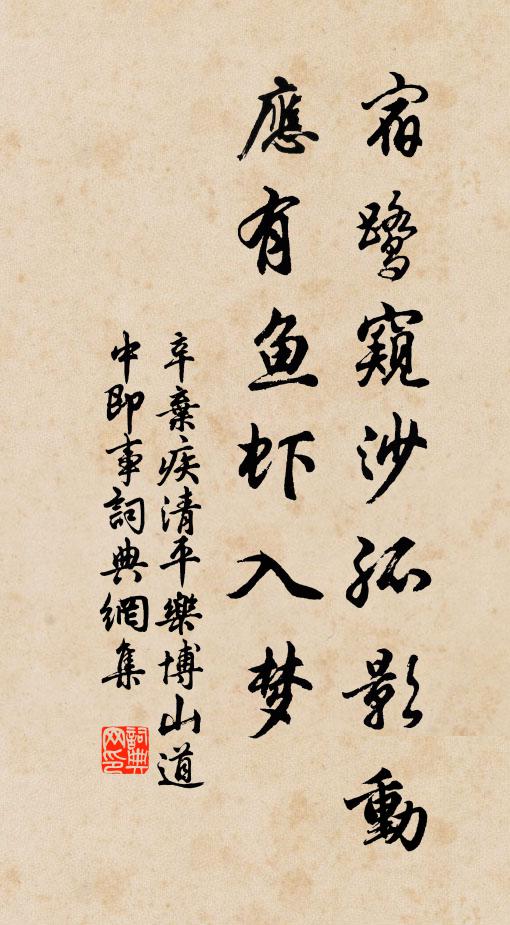 宿鹭窥沙孤影動
應有鱼虾入梦
辛棄疾清平樂博山道
中即事詞典網集
詞典
网印